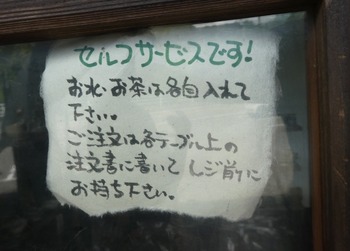 セルフサービスです!
お水・お茶は各自入れて
下さい。
ご注文は各テーブル上の
注文書に書いてレジ前に
お持ち下さい。